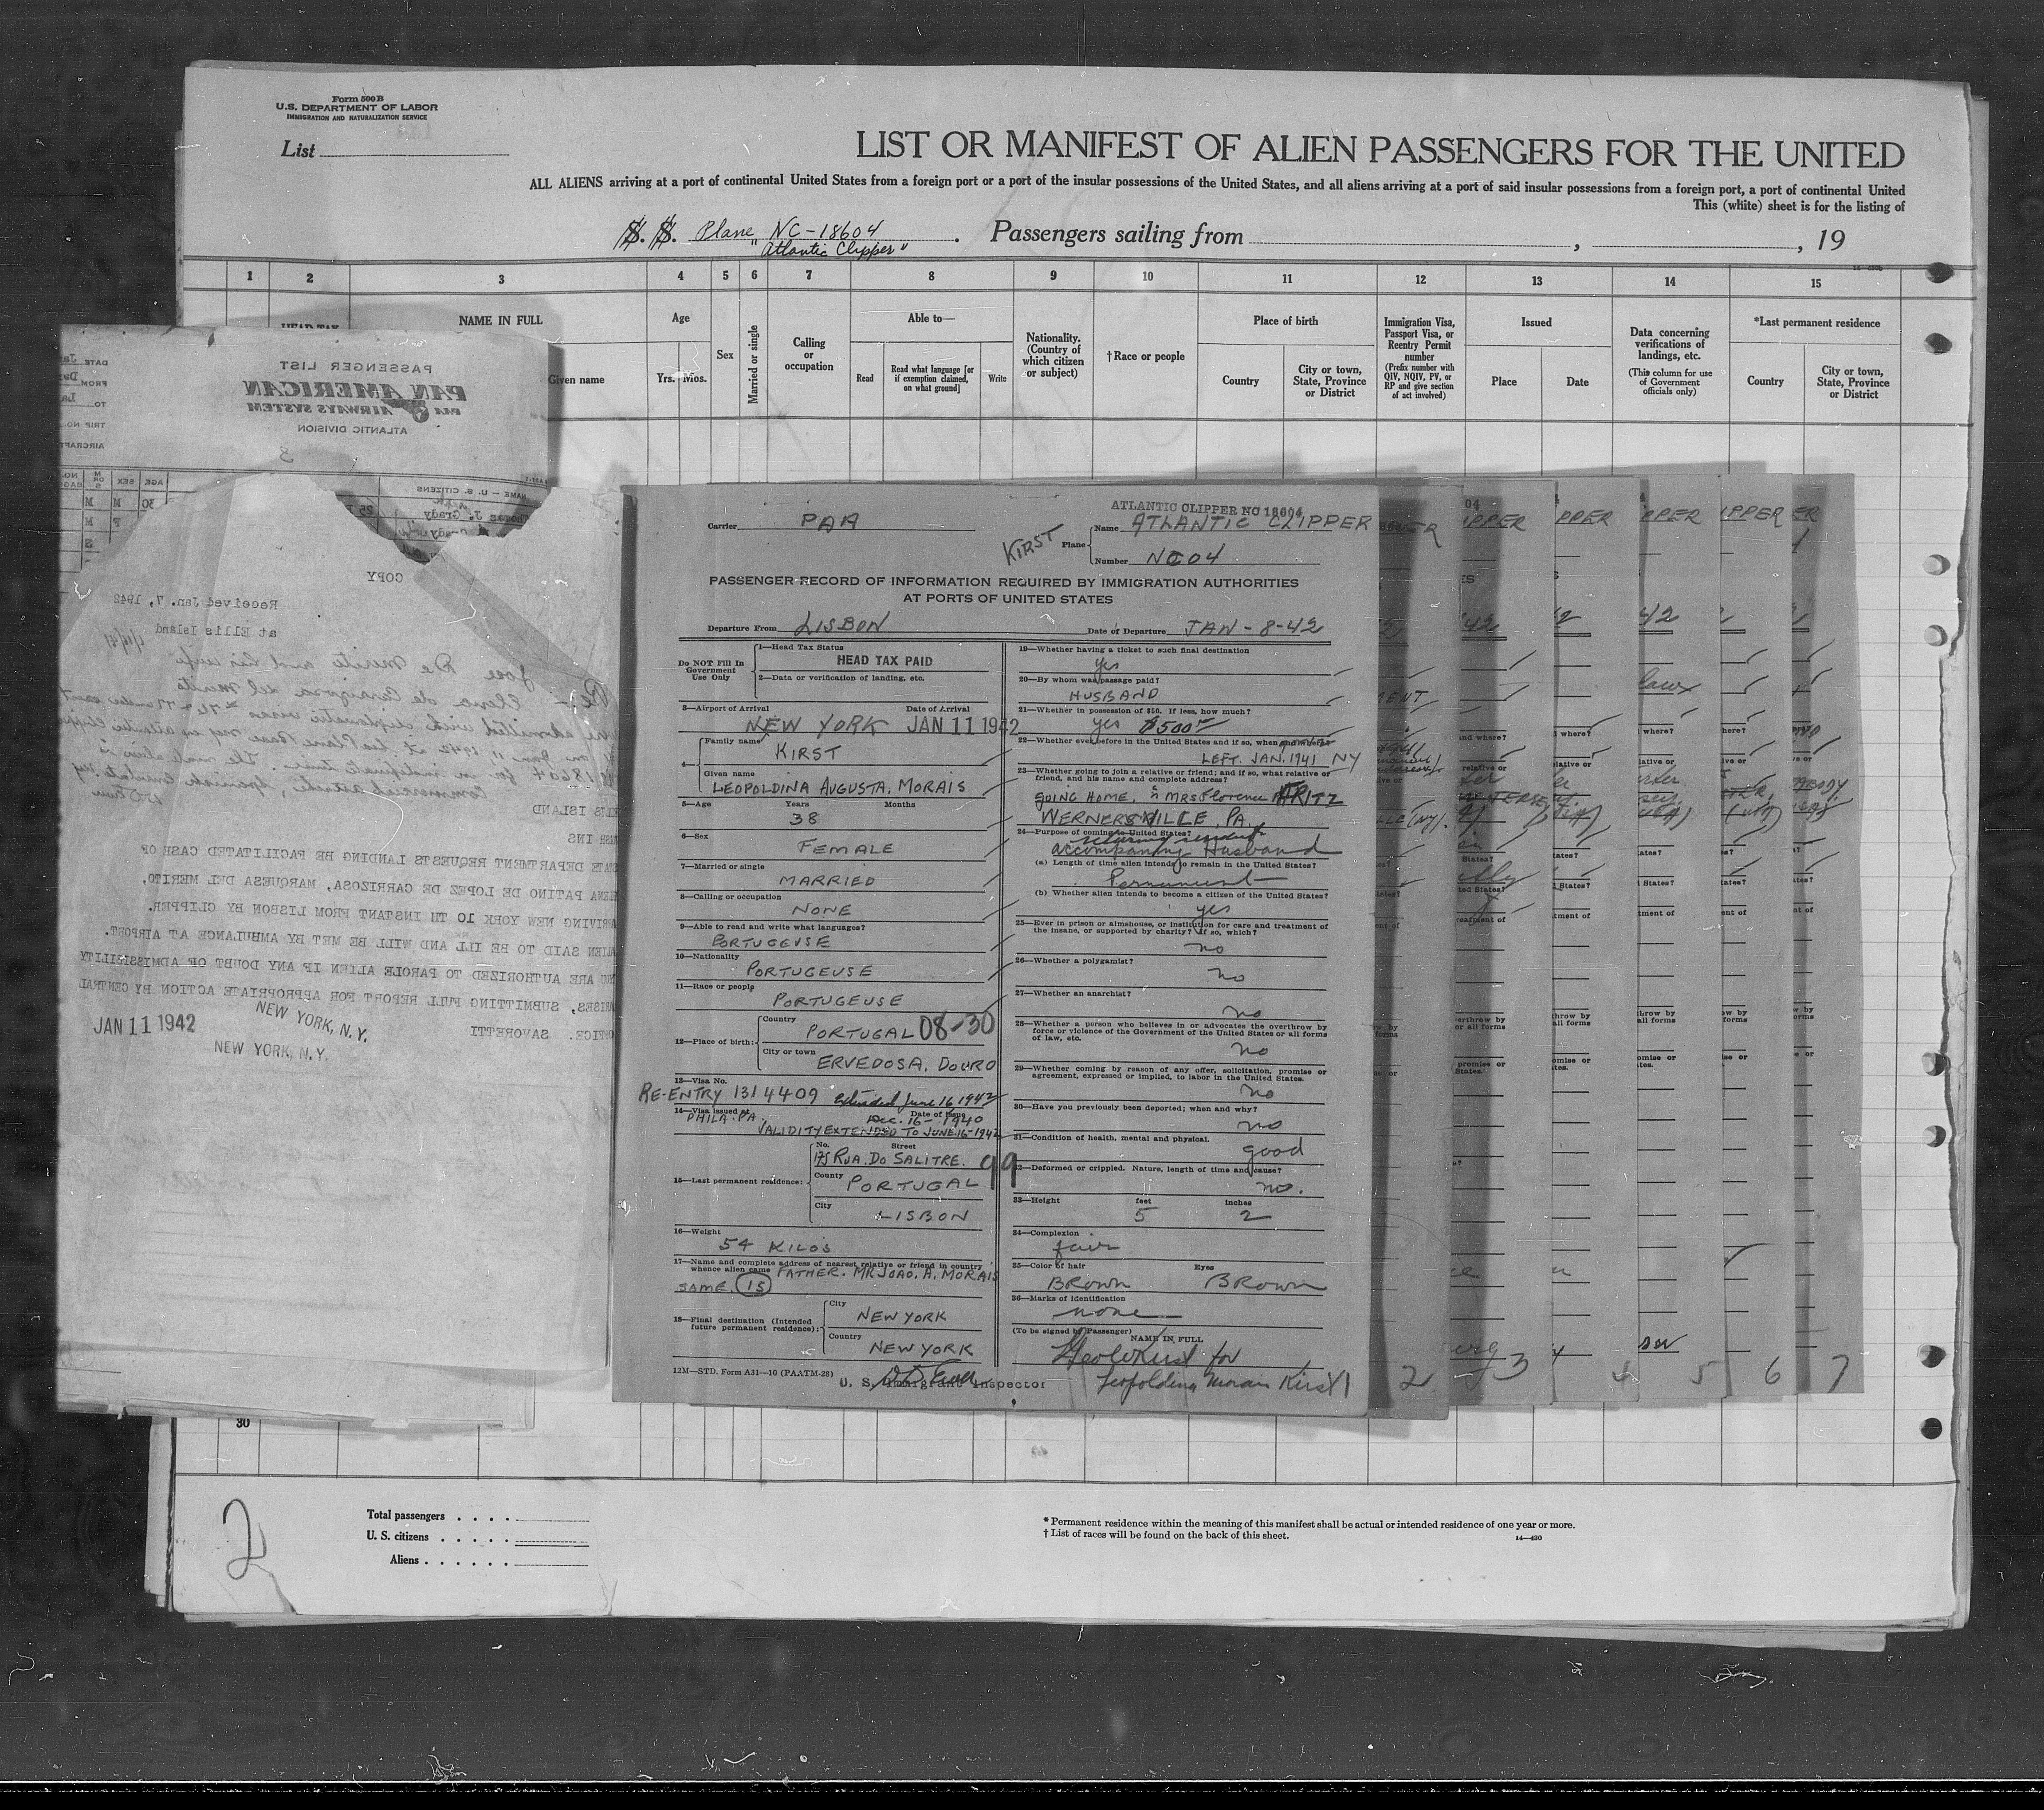 Form 500 B
U.S. DEPARTMENT OF LABOR
IMMIGRATION AND NATURALIZATION SERVICE
List
LIST OR MANIFEST OF ALIEN PASSENGERS FOR THE UNITED
ALL ALIENS arriving at a port of continental United States from a foreign port or a port of the insular possessions of the United States, and all aliens arriving at a port of said insular possessions from a foreign port, a port of continental United
This (white) sheet is for the listing of
S. S. Plane NC-18604 . Passengers sailing from , , 19
"Atlantic Clipper"
1 2 3 4 5 6 7 8 9 10 11 12 13 14 15
HEAD TAX
NAME IN FULL
Given name
Age
Yrs. Mos.
Sex
Married or single
Calling or occupation
Able to—
Read
Read what language [or if exemption claimed, on what ground]
Write
Nationality. (Country of which citizen or subject)
†Race or people
Place of birth
Country
City or town, State, Province or District
Immigration Visa, Passport Visa, or Reentry Permit number
(Prefix number with QIV, NQIV, PV, or RP and give section of act involved)
Issued
Place
Date
Data concerning verifications of landings, etc.
(This column for use of Government officials only)
*Last permanent residence
Country
City or town, State, Province or District
PASSENGER LIST
PAN AMERICAN
PAA AIRWAYS SYSTEM
ATLANTIC DIVISION
3
DATE
FROM
TO
TRIP NO.
AIRCRAFT
NAME — U. S. CITIZENS
AGE SEX M OR S
Thomas J. Grady
COPY
Received Jan. 7, 1942
at Ellis Island
Re:- Jose De Merito and his wife
Elena de Carrizosa del Merito
were admitted with diplomatic visas
on Jan 11 1942 at
for an indefinite time. The male alien is
Commercial attache, Spanish Consulate NY
ELLIS ISLAND
INS
STATE DEPARTMENT REQUESTS LANDING BE FACILITATED CASE OF
ELENA PATINO DE LOPEZ DE CARRIZOSA, MARQUESA DEL MERITO,
ARRIVING NEW YORK 10 TH INSTANT FROM LISBON BY CLIPPER.
ALIEN SAID TO BE ILL AND WILL BE MET BY AMBULANCE AT AIRPORT.
YOU ARE AUTHORIZED TO PAROLE ALIEN IF ANY DOUBT OF ADMISSIBILITY
ARISES, SUBMITTING FULL REPORT FOR APPROPRIATE ACTION BY CENTRAL
OFFICE. SAVORETTI
JAN 11 1942
NEW YORK, N.Y.
NEW YORK, N.Y.
ATLANTIC CLIPPER NC 18604
Carrier PAA
KIRST
Plane Name ATLANTIC CLIPPER
Number NC04
PASSENGER RECORD OF INFORMATION REQUIRED BY IMMIGRATION AUTHORITIES
AT PORTS OF UNITED STATES
Departure From LISBON Date of Departure JAN-8-42
Do NOT Fill In Government Use Only
1—Head Tax Status
HEAD TAX PAID
2—Data or verification of landing, etc.
3—Airport of Arrival Date of Arrival
NEW YORK JAN 11 1942
4— Family name KIRST
Given name LEOPOLDINA AUGUSTA, MORAIS
5—Age Years Months
38
6—Sex
FEMALE
7—Married or single
MARRIED
8—Calling or occupation
NONE
9—Able to read and write what languages?
PORTUGEUSE
10—Nationality
PORTUGEUSE
11—Race or people
PORTUGEUSE
12—Place of birth: Country PORTUGAL 08-30
City or town ERVEDOSA, DOURO
13—Visa No.
RE-ENTRY 1314409 Extended June 16, 1942
14—Visa issued at Date of Issue
PHILA. PA. Dec. 16- 1940
VALIDITY EXTENDED TO JUNE-16-1942
15—Last permanent residence: No. Street
175 RUA. DO SALITRE. 99
County PORTUGAL
City LISBON
16—Weight
54 KILOS
17—Name and complete address of nearest relative or friend in country whence alien came FATHER. MR JOAO. A. MORAIS
SAME. 15
18—Final destination (Intended future permanent residence): City NEW YORK
Country NEW YORK
12M—STD. Form AJ1—10 (PAATM-28)
U. S. Immigrant Inspector
19—Whether having a ticket to such final destination
yes
20—By whom was passage paid?
HUSBAND
21—Whether in possession of $50. If less, how much?
yes $500
22—Whether ever before in the United States and if so, when and where
LEFT. JAN. 1941 NY
23—Whether going to join a relative or friend; and if so, what relative or friend, and his name and complete address?
GOING HOME, % MRS Florence ARTZ
WERNERSVILLE, PA.
24—Purpose of coming to United States?
returning resident
accompaning Husband
(a) Length of time alien intends to remain in the United States?
Permanent
(b) Whether alien intends to become a citizen of the United States?
yes
25—Ever in prison or almshouse, or institution for care and treatment of the insane, or supported by charity? If so, which?
no
26—Whether a polygamist?
no
27—Whether an anarchist?
no
28—Whether a person who believes in or advocates the overthrow by force or violence of the Government of the United States or all forms of law, etc.
no
29—Whether coming by reason of any offer, solicitation, promise or agreement, expressed or implied, to labor in the United States.
no
30—Have you previously been deported; when and why?
no
31—Condition of health, mental and physical.
good
32—Deformed or crippled. Nature, length of time and cause?
no.
33—Height feet inches
5 2
34—Complexion
fair
35—Color of hair Eyes
BROWN BROWN
36—Marks of identification
none
(To be signed by Passenger)
NAME IN FULL
Geo W Kirst for
Leopoldina Morais Kirst
1 2 3 4 5 6 7
30
2
Total passengers
U. S. citizens
Aliens
* Permanent residence within the meaning of this manifest shall be actual or intended residence of one year or more.
† List of races will be found on the back of this sheet.
14—430